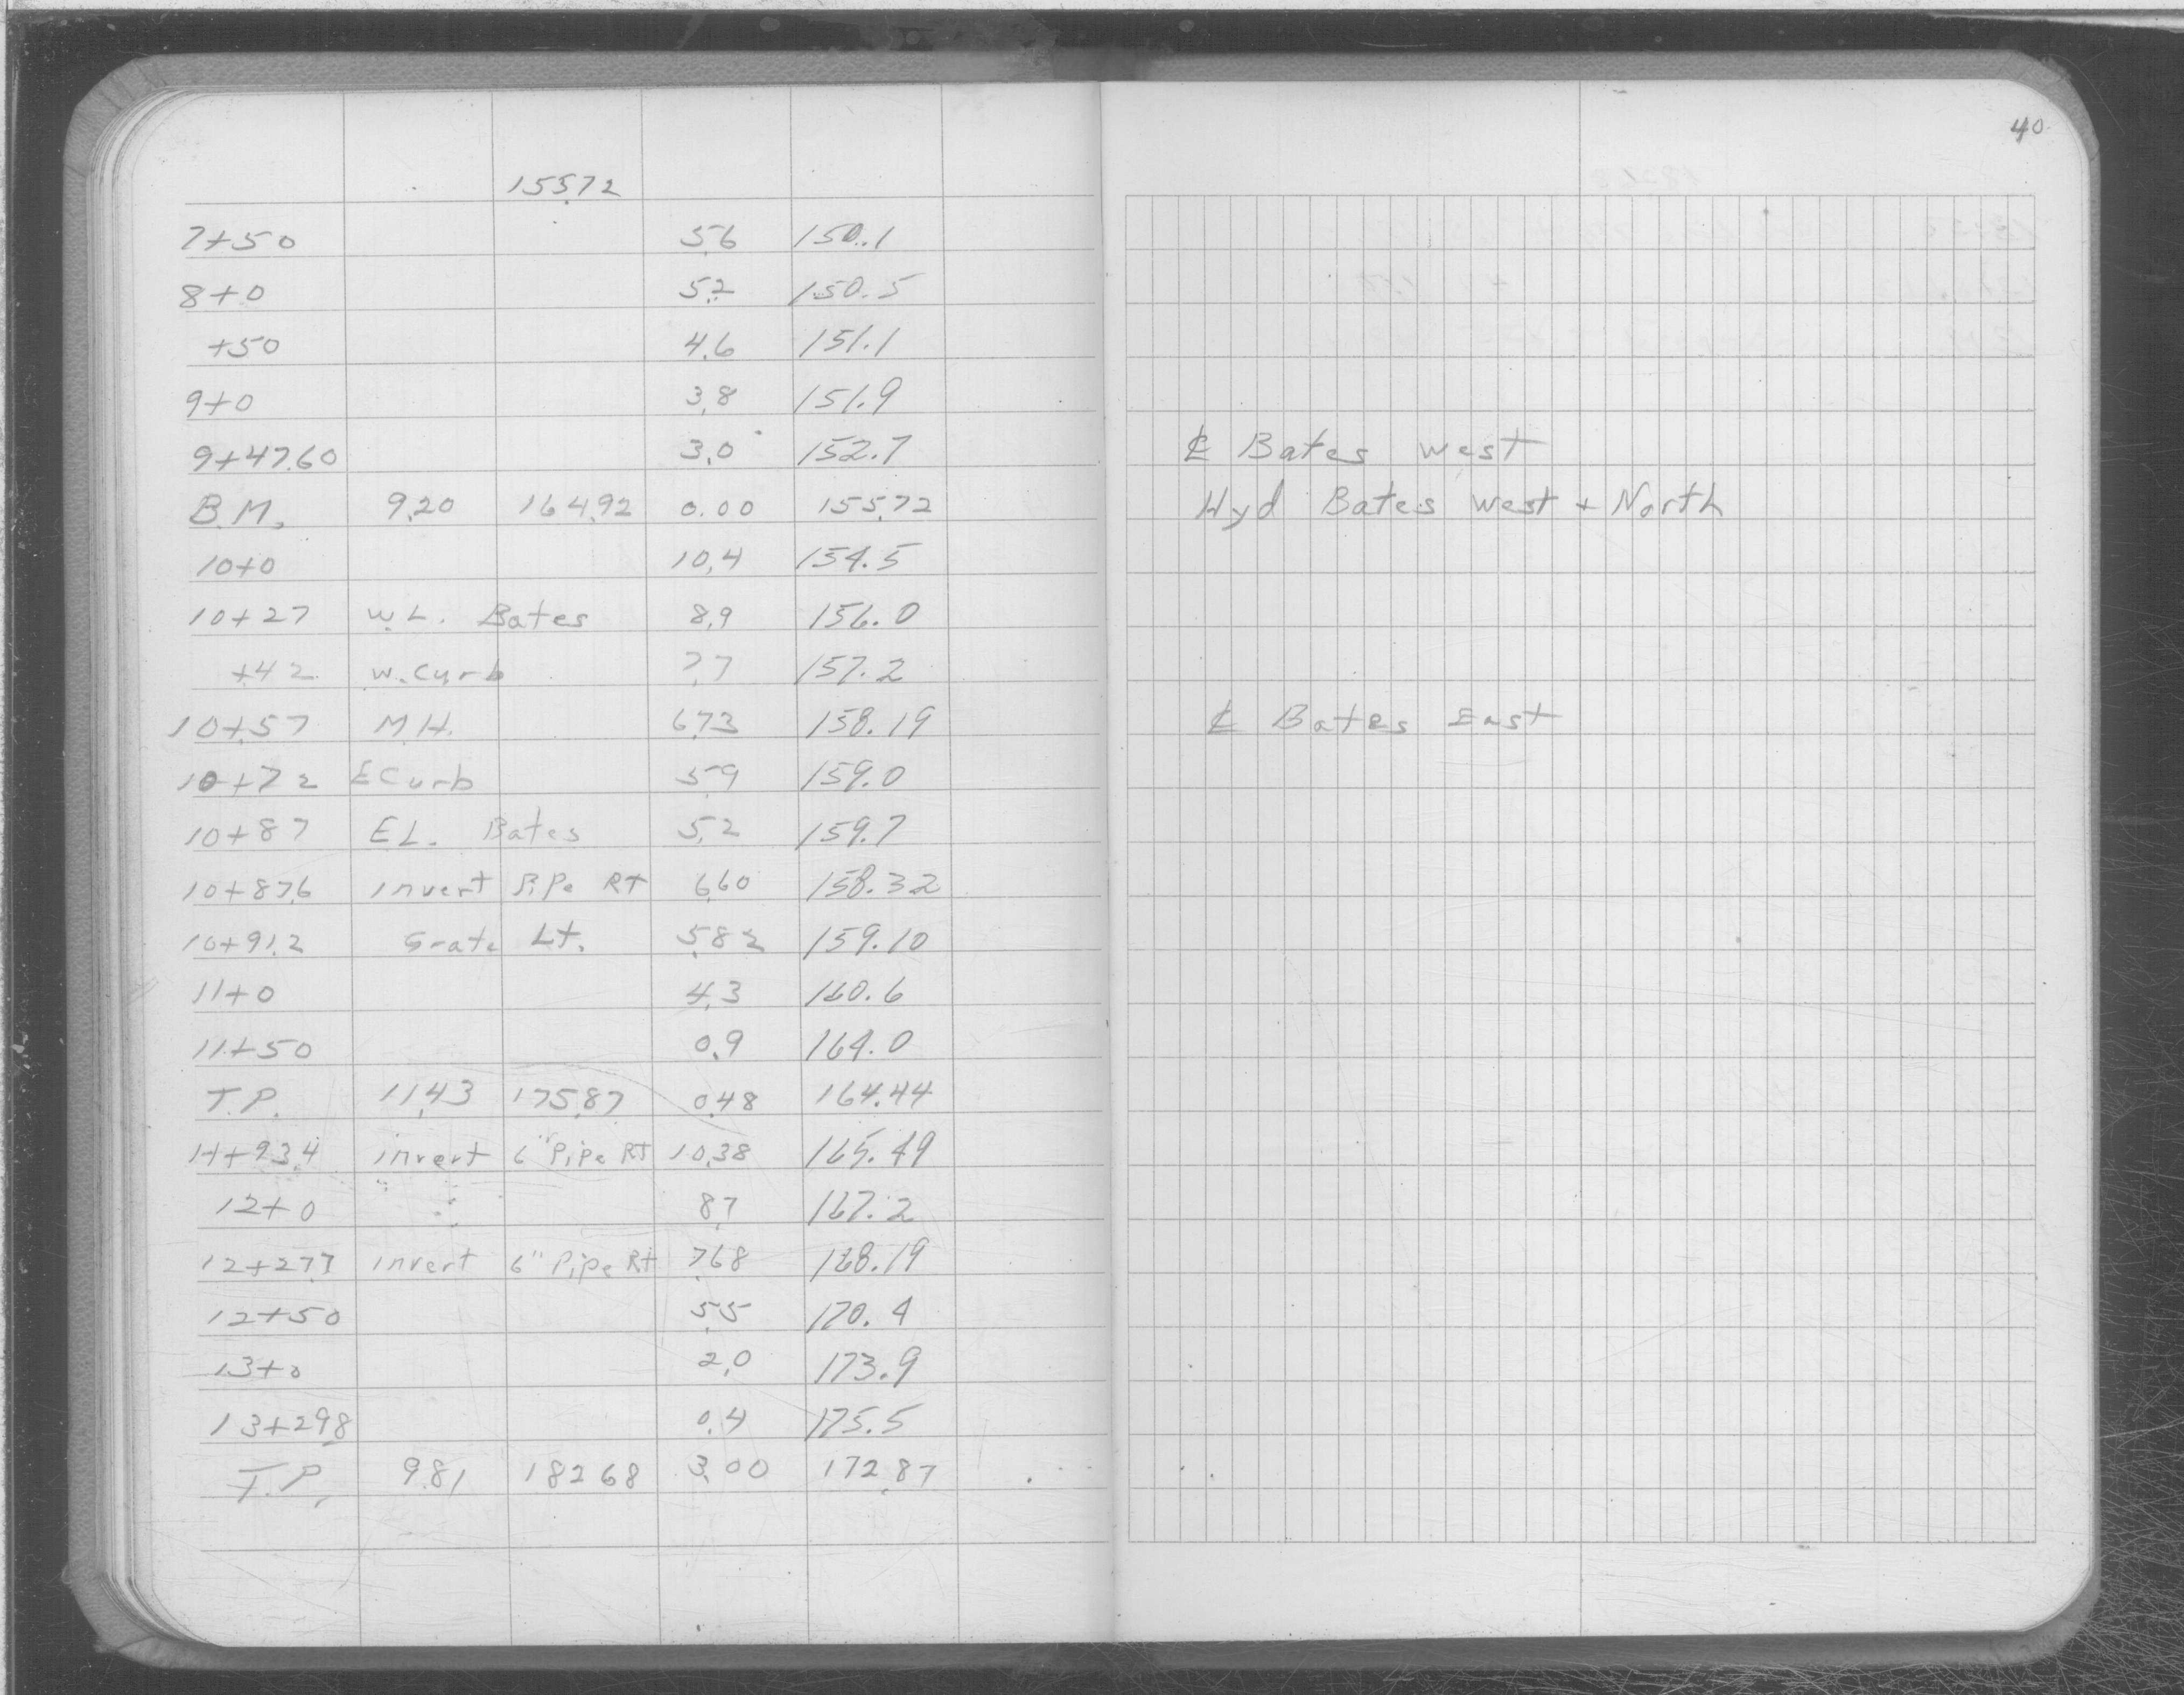 40
155.72
7+50 5.6 150.1
8+0 5.2 150.5
+50 4.6 151.1
9+0 3.8 151.9
9+47.60 3.0 152.7 ℄ Bates west
B.M. 9.20 164.92 0.00 155.72 Hyd Bates west + North
10+0 10.4 154.5
10+27 W.L. Bates 8.9 156.0
+42 W. Curb 7.7 157.2
10+57 M.H. 6.73 158.19 ℄ Bates East
10+72 E Curb 5.9 159.0
10+87 E L. Bates 5.2 159.7
10+87.6 invert PiPe RT 6.60 158.32
10+91.2 Grate Lt. 5.82 159.10
11+0 4.3 160.6
11+50 0.9 164.0
T.P. 11.43 175.87 0.48 164.44
11+93.4 invert 6" PiPe RT 10.38 165.49
12+0 8.7 167.2
12+27.7 invert 6" PiPe Rt 7.68 168.19
12+50 5.5 170.4
13+0 2.0 173.9
13+29.8 0.4 175.5
T.P. 9.81 182.68 3.00 172.87